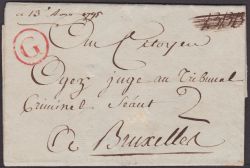 1795
G
Au Citoyen
Oyez juge au Tribunal
Criminel Séant 2
A Bruxelles